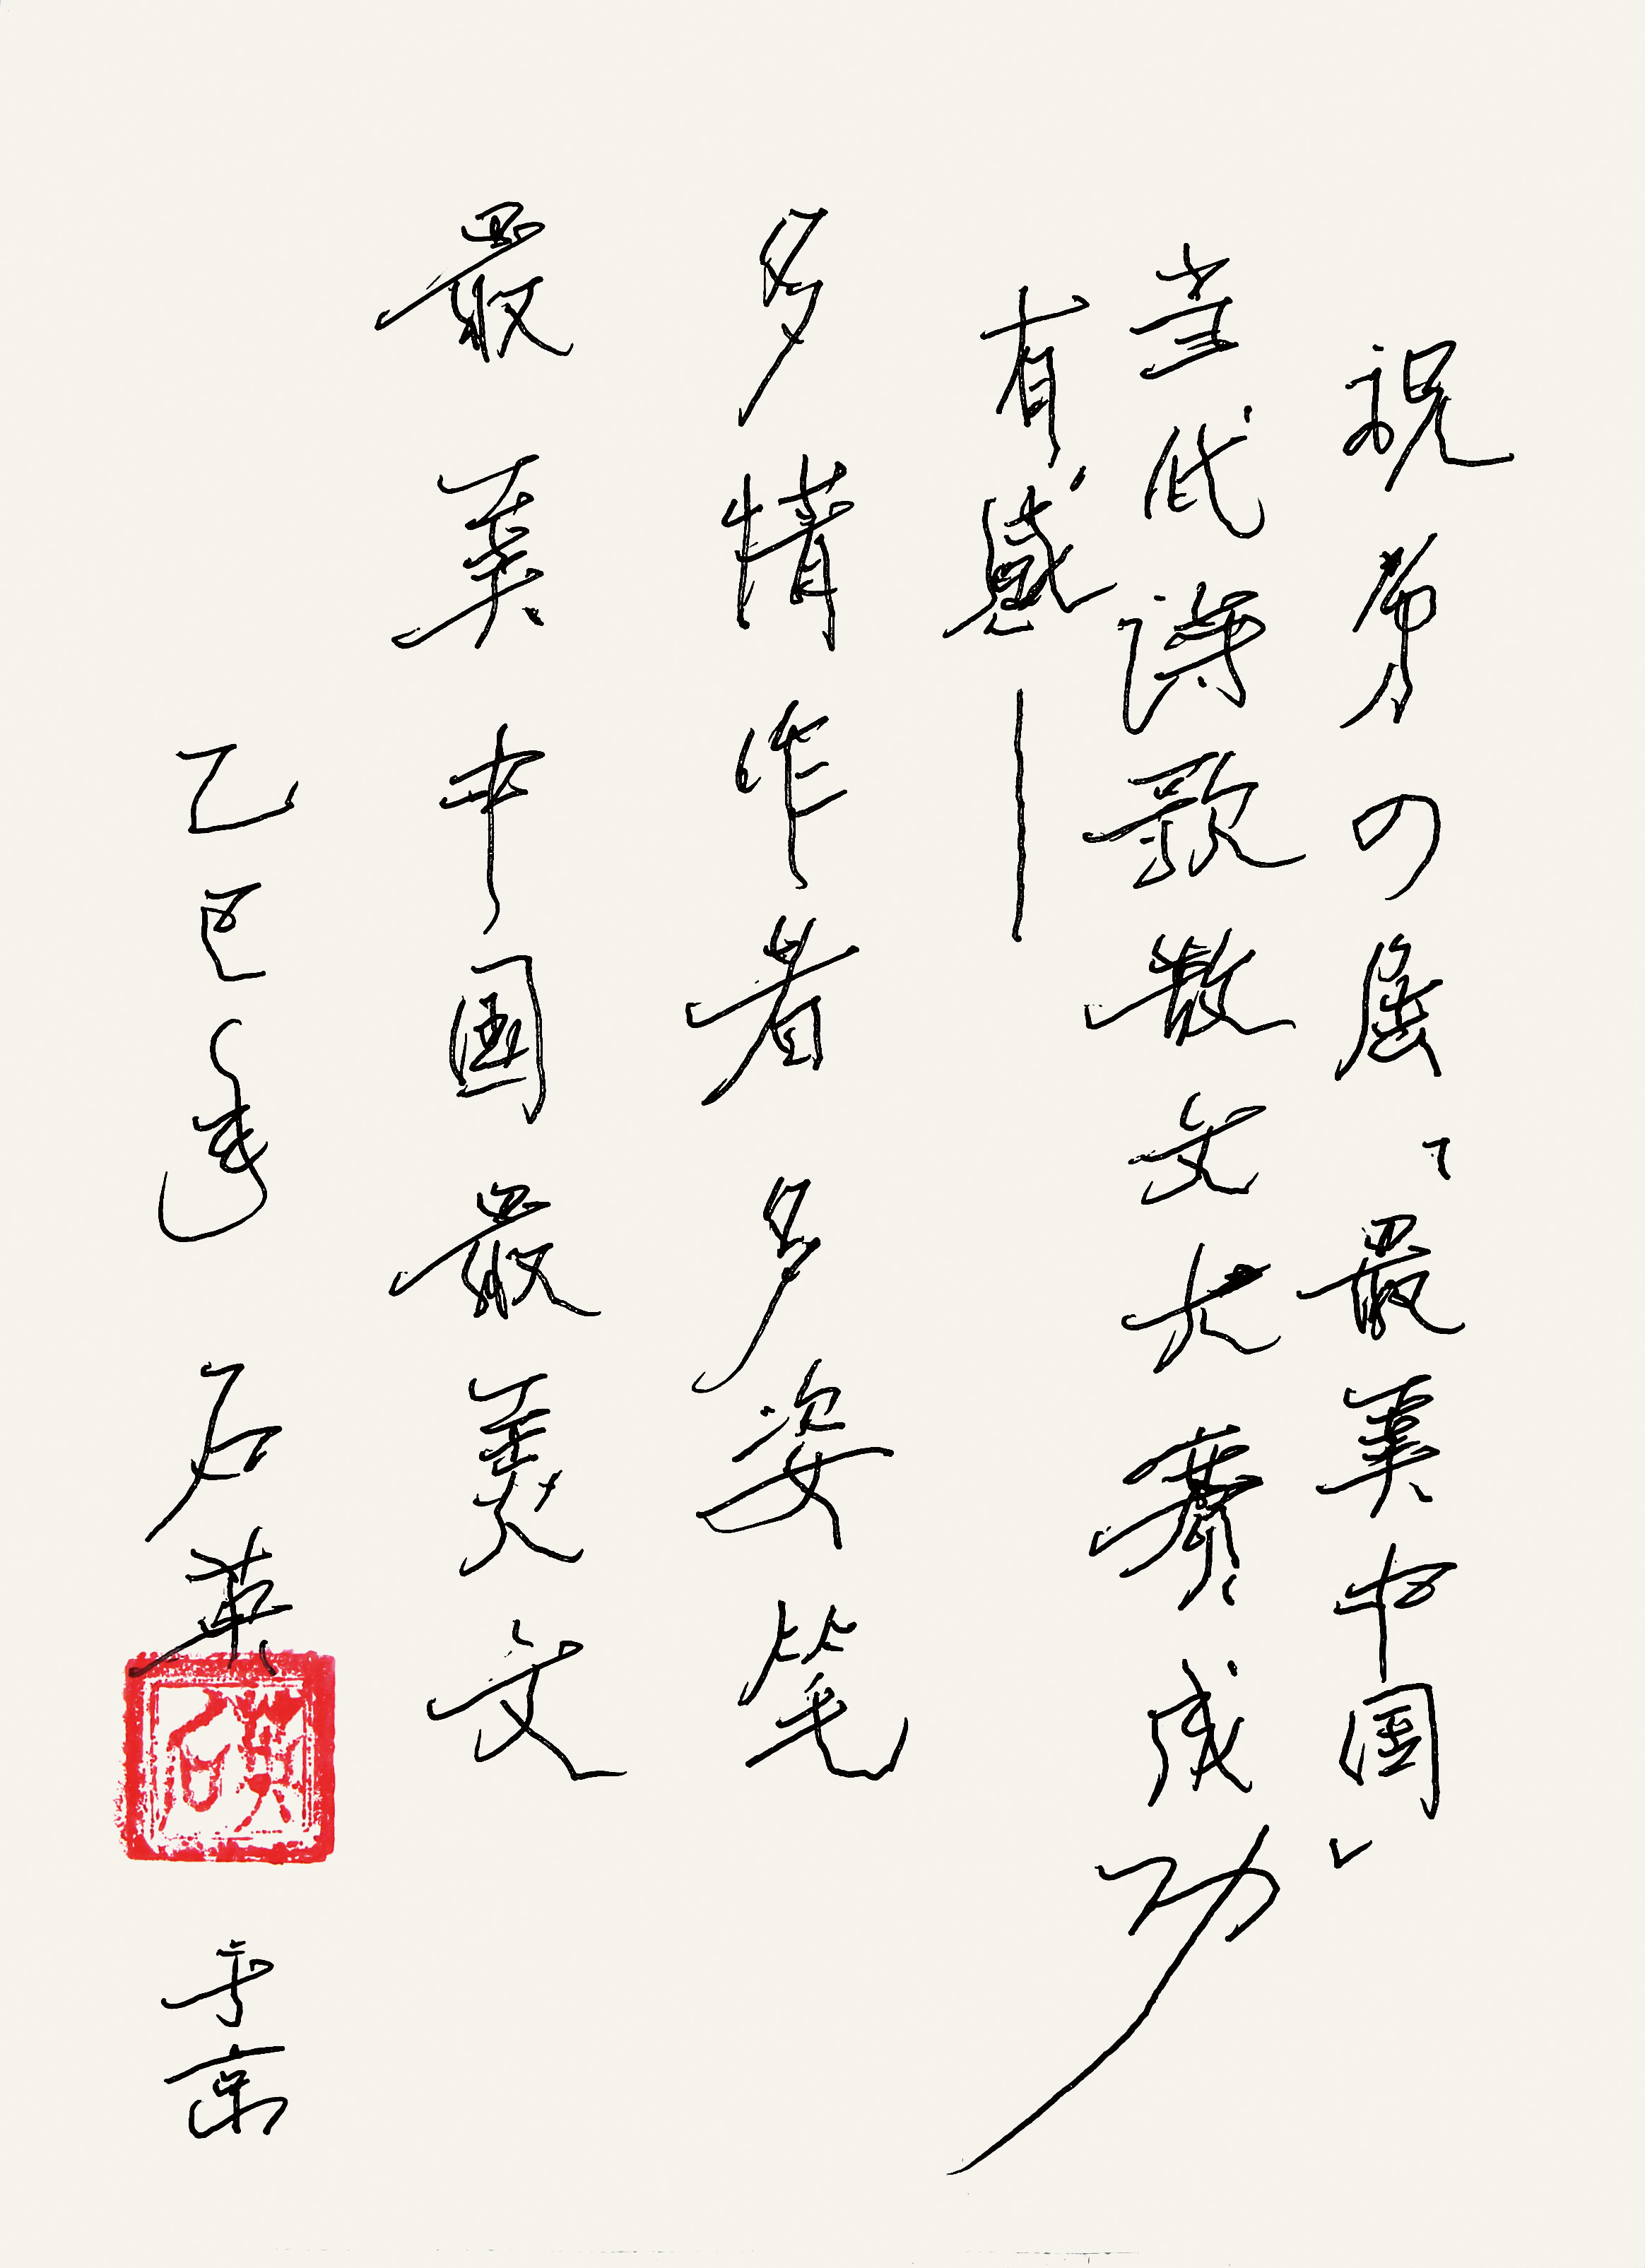 祝第四届“最美中国”
当代诗歌散文大赛成功
有感——
多情作者多姿笔
最美中国最美文
乙巳年 石英 于京